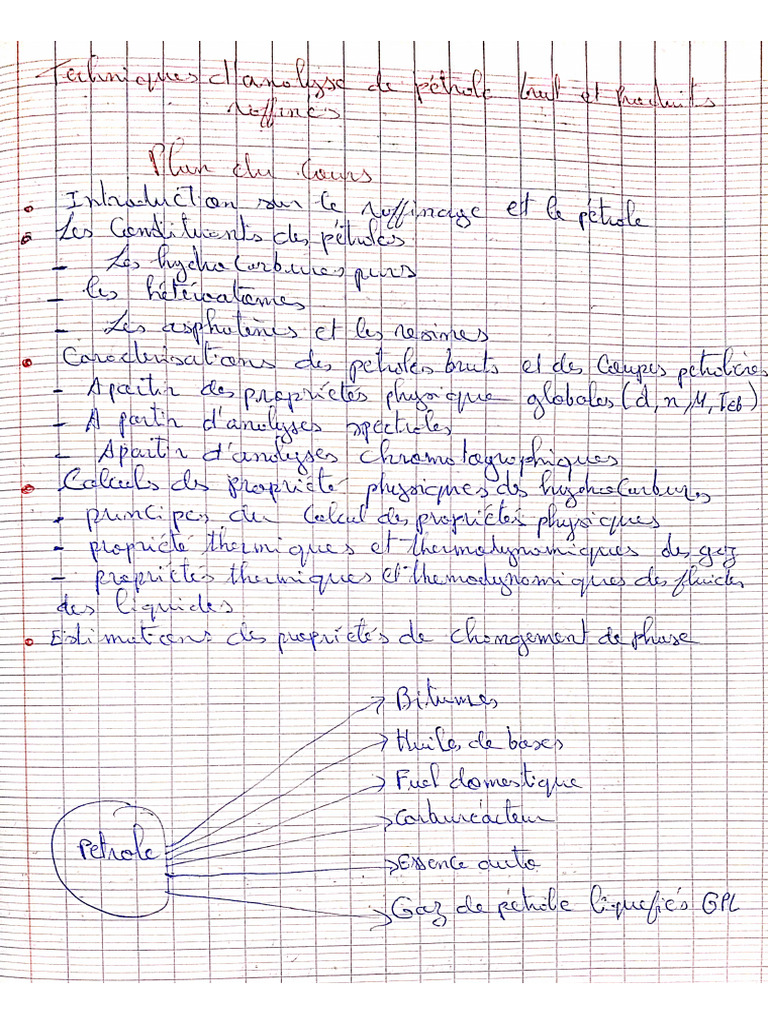 Techniques d'analyse de pétrole brut et Produits
raffinés
Plan du Cours
• Introduction sur le raffinage et le pétrole
• Les Constituants des pétroles
- Les hydrocarbures purs
- les hétéroatomes
- Les asphaltènes et les resines
• Caractérisations des pétroles bruts et des Coupes pétrolières
- A partir des propriétés physique globales (d, n, M, Teb)
- A partir d'analyses spectrales
- A partir d'analyses chromatographiques
• Calculs des propriété physiques des hydrocarbures
- principes du Calcul des propriétés physiques
- propriété thermiques et thermodynamiques des gaz
- propriétés thermiques et thermodynamiques des fluides
des liquides
• Estimations des propriétés de changement de phase
Bitumes
Huiles de bases
Fuel domestique
Carburéacteur
Pétrole
Essence auto
Gaz de pétrole liquefiés GPL